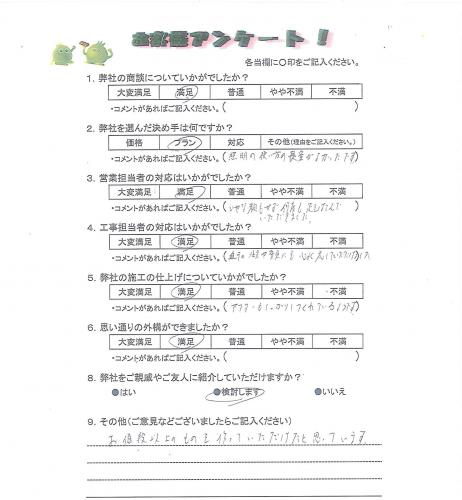 お客様アンケート!
各当欄に〇印をご記入ください。
1. 弊社の商談についていかがでしたか?
大変満足 満足 普通 やや不満 不満
・コメントがあればご記入ください。( )
2. 弊社を選んだ決め手は何ですか?
価格 プラン 対応 その他(理由をご記入ください。)
・コメントがあればご記入ください。(照明の使い方の提案がよかったです)
3. 営業担当者の対応はいかがでしたか?
大変満足 満足 普通 やや不満 不満
・コメントがあればご記入ください。(いやな顔もせず何度も足しはこんで
いただきました。)
4. 工事担当者の対応はいかがでしたか?
大変満足 満足 普通 やや不満 不満
・コメントがあればご記入ください。(
5. 弊社の施工の仕上げについていかがでしたか?
大変満足 満足 普通 やや不満 不満
・コメントがあればご記入ください。(アフターもしっかりしてくれている
6. 思い通りの外構ができましたか?
大変満足 満足 普通 やや不満 不満
・コメントがあればご記入ください。( )
8. 弊社をご親戚やご友人に紹介していただけますか?
●はい ●検討します ●いいえ
9. その他(ご意見などございましたらご記入ください)
お値段以上のものを作っていただけたと思っています